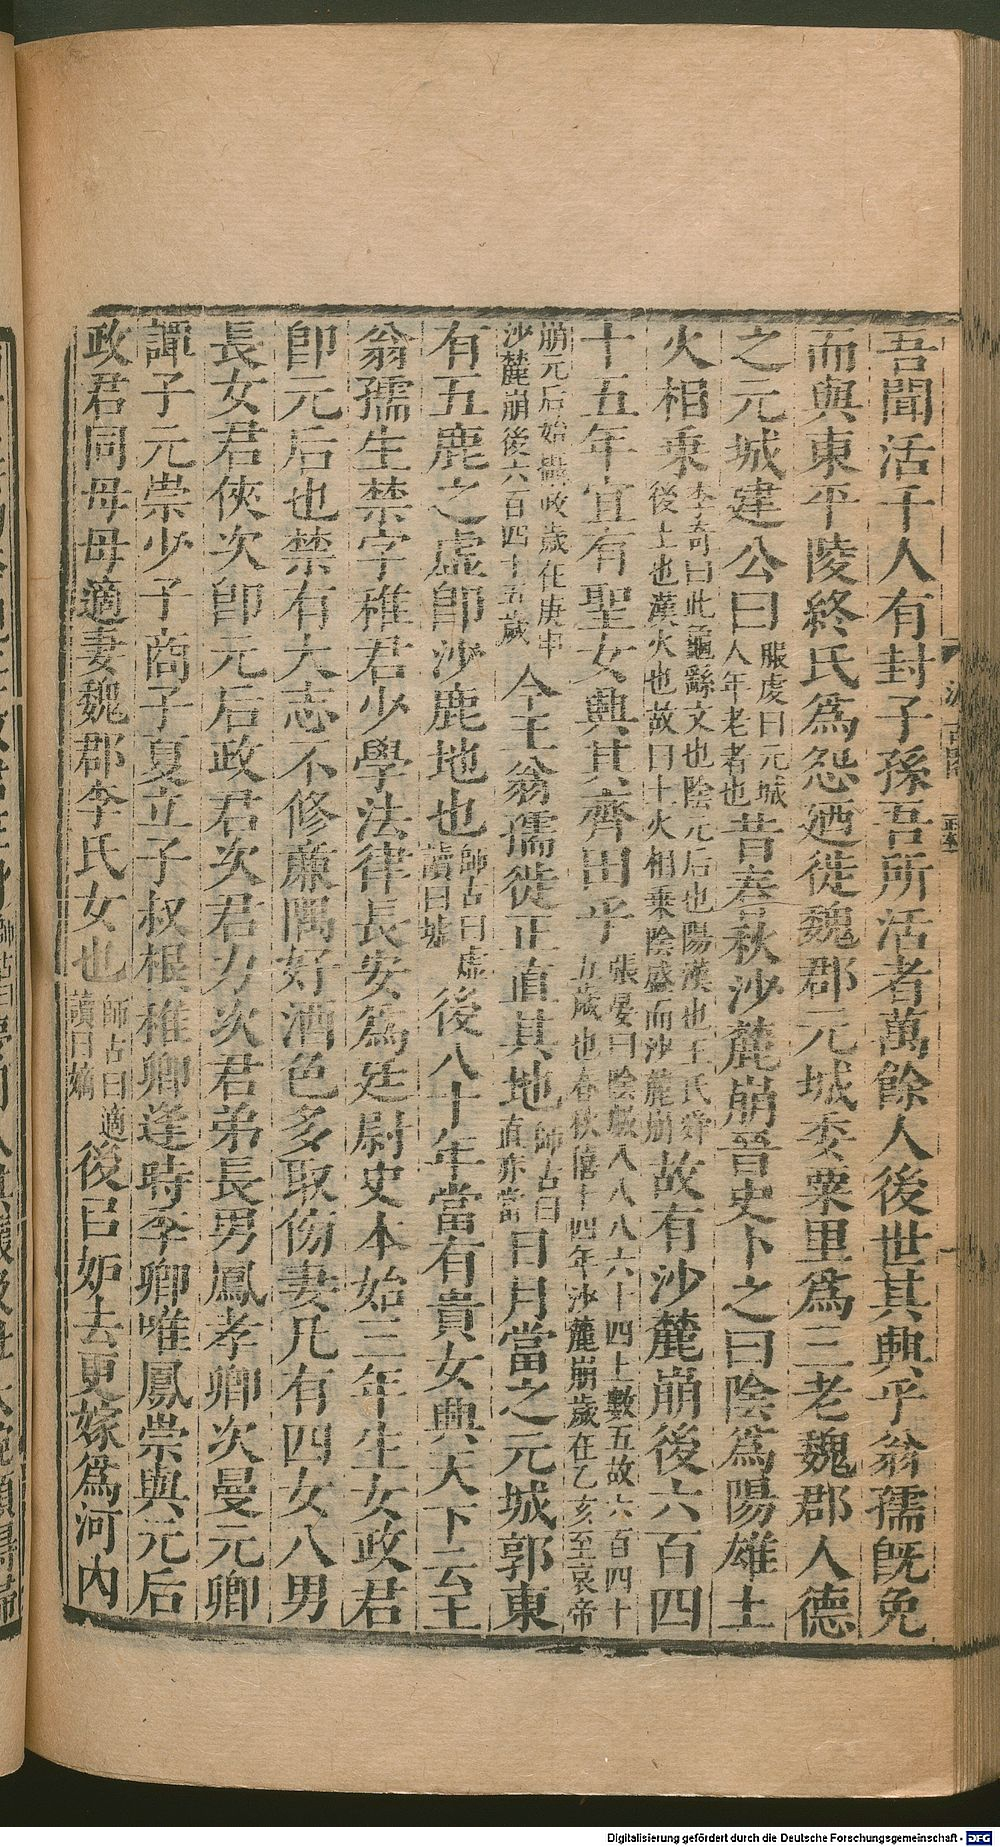 吾聞活千人有封子孫吾所活者萬餘人後世其興乎翁孺旣免
而與東平陵終氏爲怨廼徙魏郡元城委粟里爲三老魏郡人德
之元城建公曰服虔曰元城人年老者也昔春秋沙麓崩晉史卜之曰陰爲陽雄土
火相乘李奇曰此龜繇文也陰元后也陽漢也王氏舜後土也漢火也故曰土火相乗陰盛而沙麓崩故有沙麓崩後六百四
十五年宜有聖女興其齊田乎張晏曰陰數八八八六十四土數五故六百四十五歲也春秋僖十四年沙麓崩歲在乙亥至哀帝
崩元后始攝政歲在庚申沙麓崩後六百四十五歲今王翁孺徙正直其地師古曰直亦當日月當之元城郭東
有五鹿之虛卽沙鹿地也師古曰虛讀曰墟後八十年當有貴女興天下云王
翁孺生禁字稚君少學法律長安爲廷尉史本始三年生女政君
卽元后也禁有大志不修廉隅好酒色多取傍妻凡有四女八男
長女君俠次卽元后政君次君力次君弟長男鳳孝卿次曼元卿
譚子元崇少子商子夏立子叔根稚卿逢時季卿唯鳳崇與元后
政君同母母適妻魏郡李氏女也師古曰適讀曰嫡後已妒去更嫁爲河內
Digitalisierung gefördert durch die Deutsche Forschungsgemeinschaft - DFG